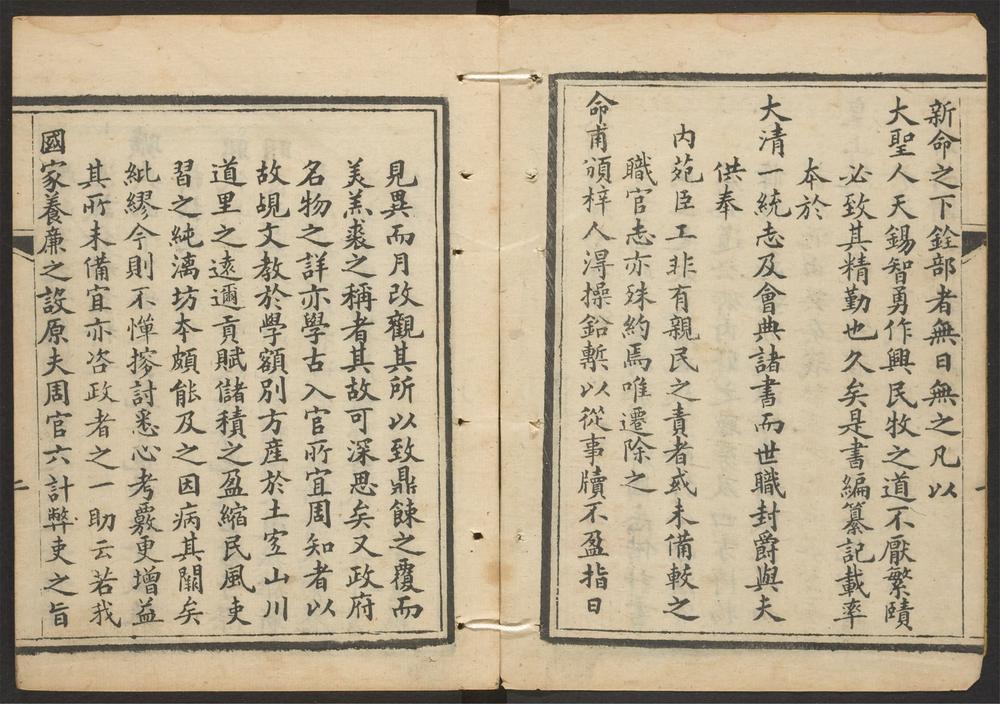 新命之下銓部者無日無之凡以
大聖人天錫智勇作興民牧之道不厭繁賾
必致其精勤也久矣是書編纂記載率
本於
大清一統志及會典諸書而世職封爵與夫
供奉
內苑臣工非有親民之責者或未備較之
職官志亦殊約焉唯遷除之
命甫頒梓人淂操鉛槧以從事牘不盈指日
見異而月改觀其所以致鼎餗之覆而
美羔裘之稱者其故可深思矣又政府
名物之詳亦學古入官所宜周知者以
故覘文教於學額別方產於土宜山川
道里之遠邇貢賦儲積之盈縮民風吏
習之純漓坊本頗能及之因病其闕矣
紕繆今則不憚搜討悉心考覈更增益
其所未備宜亦咨政者之一助云若我
國家養廉之設原夫周官六計弊吏之旨
二